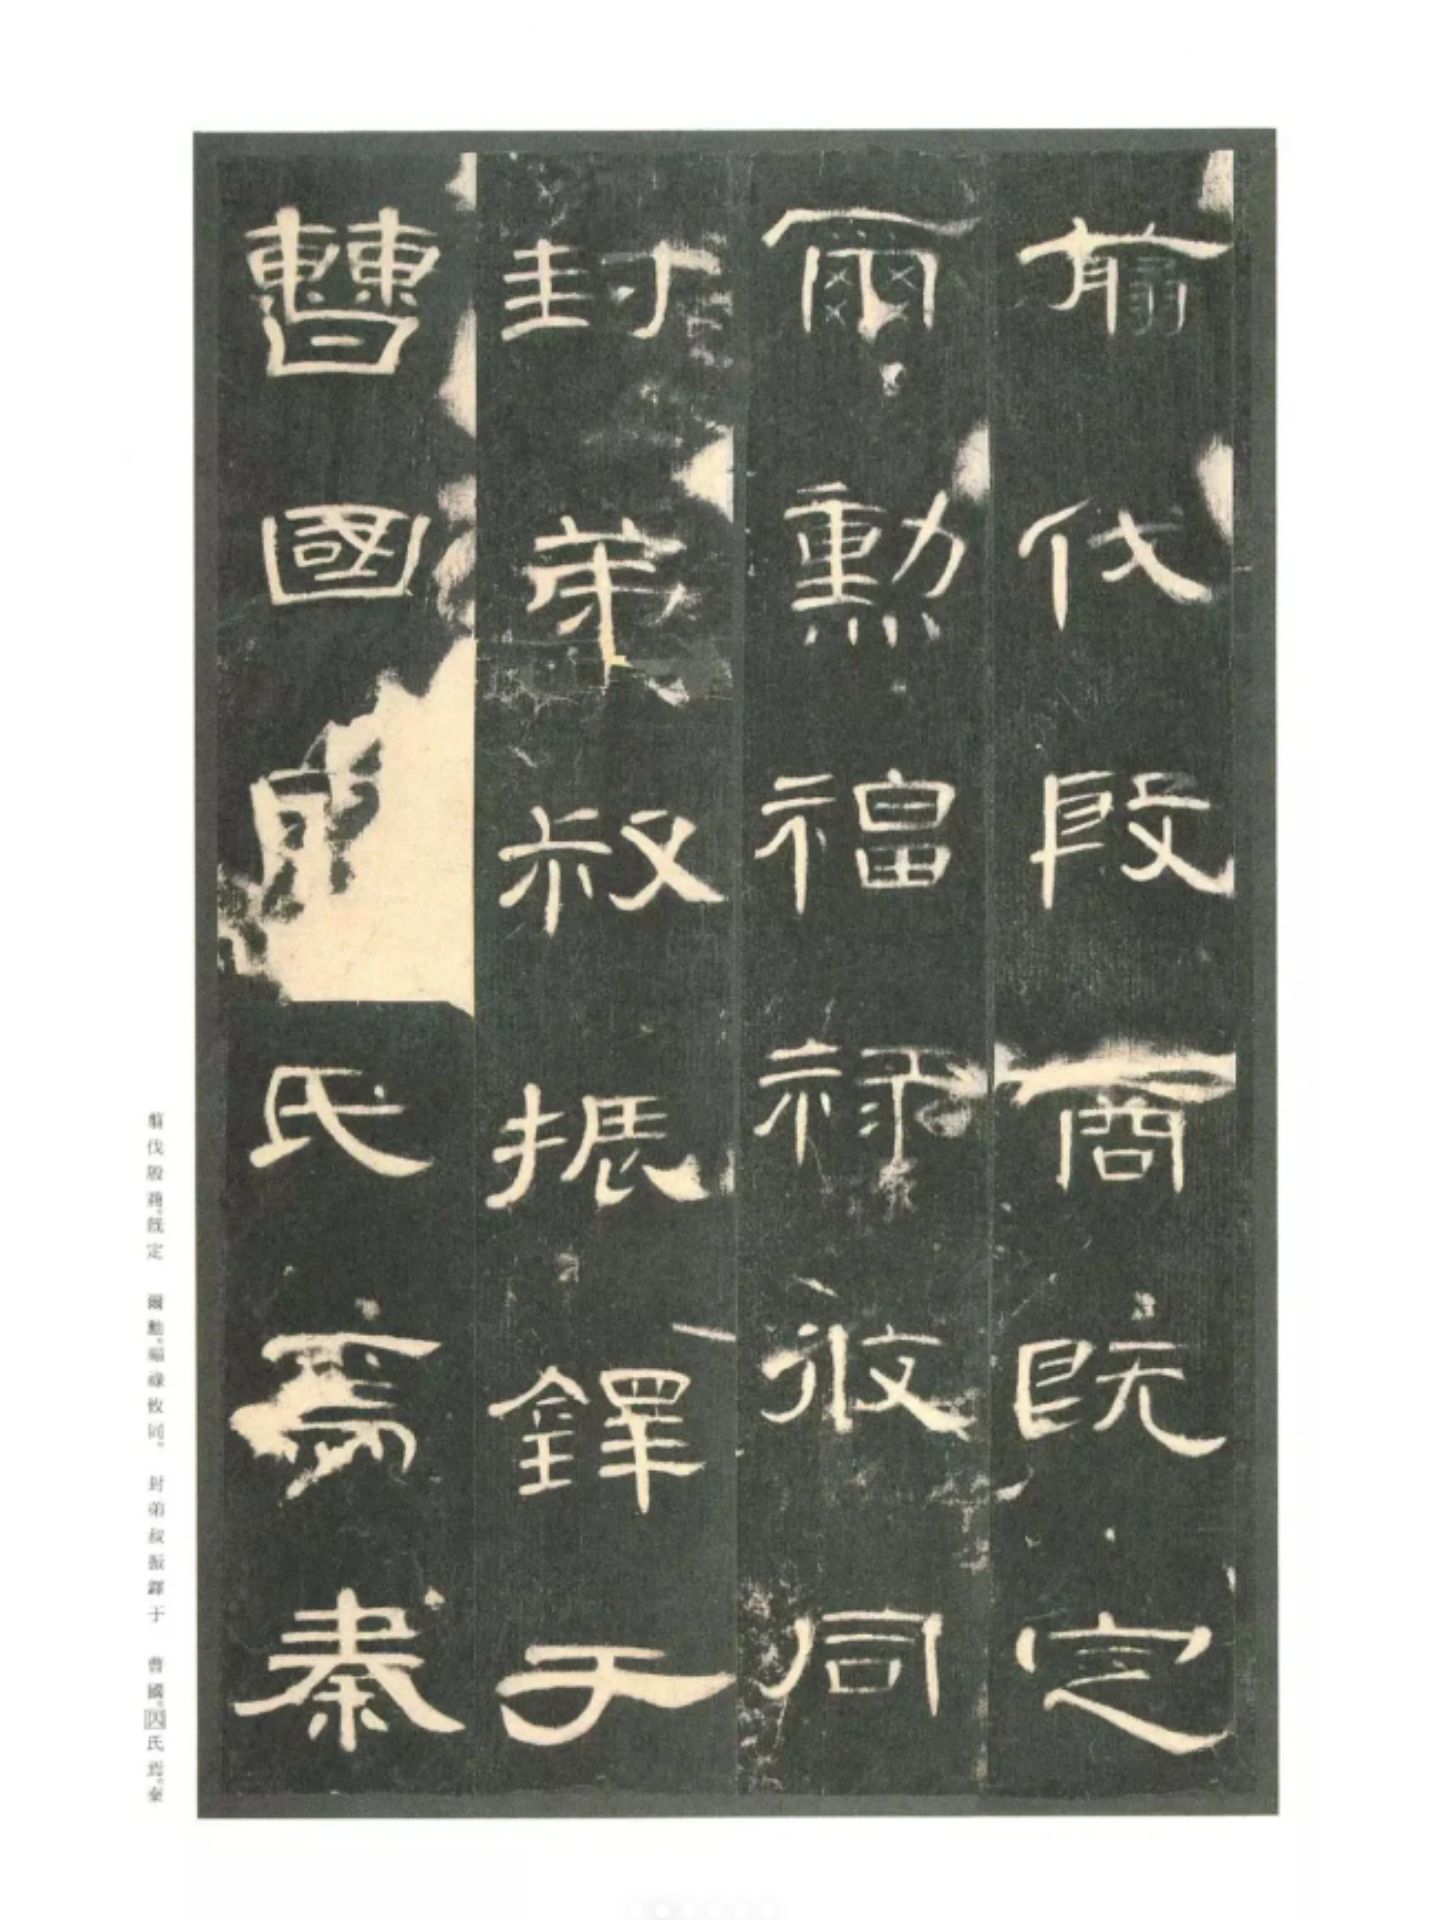 翦伐殷商既定
爾勳福祿攸同
封弟叔振鐸于
曹國因氏焉秦
翦伐殷商。既定 爾勳。福祿攸同。 封弟叔振鐸于 曹國。因氏焉。秦